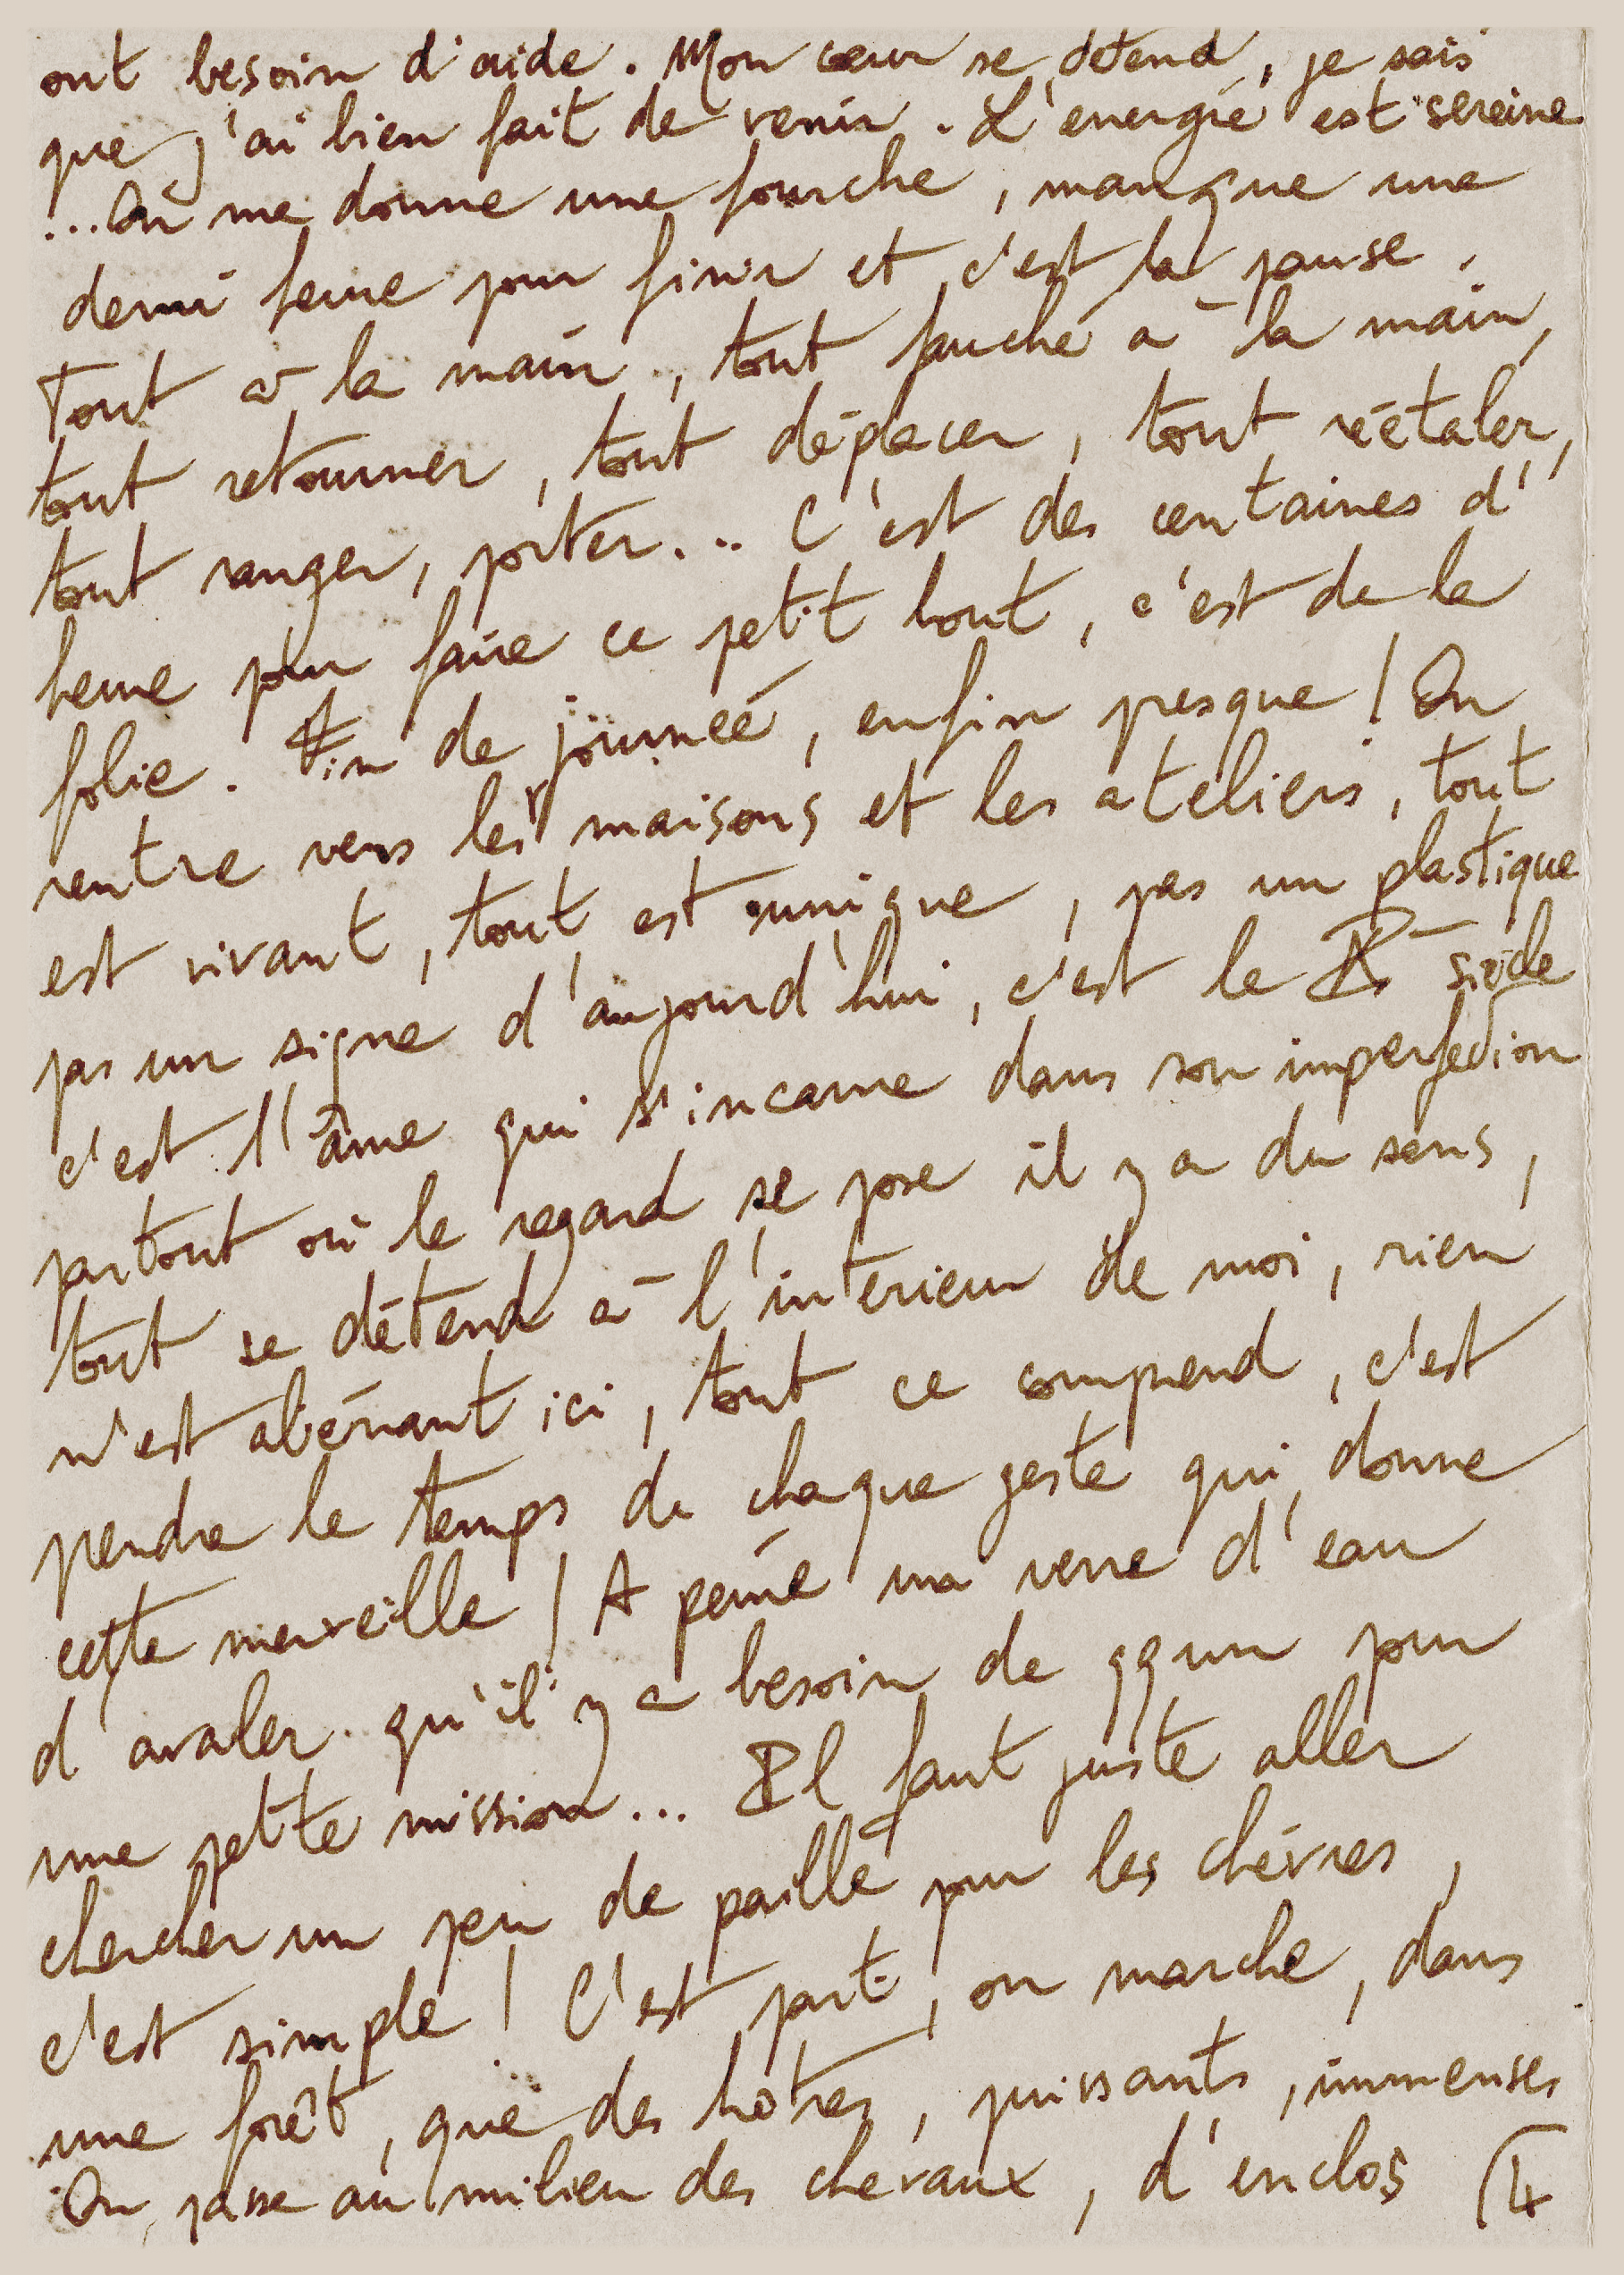 ont besoin d'aide. Mon cœur se détend, je sais
que j'ai bien fait de venir. L'énergie est sereine
...On me donne une fourche, manque une
demi heure pour finir et c'est la pause.
Tout à la main, tout fauché à la main,
tout retourner, tout déplacer, tout réétaler,
tout ranger, porter... C'est des centaines d'
heure pour faire ce petit bout, c'est de la
folie. Fin de journéé, enfin presque ! On
rentre vers les maisons et les ateliers, tout
est vivant, tout est unique, pas un plastique
pas un signe d'aujourd'hui, c'est le siècle
c'est l'âme qui s'incarne dans son imperfection
partout où le regard se pose il y a du sens,
tout se détend à l'intérieur de moi, rien
n'est abérrant ici, tout ce comprend, c'est
prendre le temps de chaque geste qui donne
cette merveille ! A peine un verre d'eau
d'avaler qu'il y a besoin de qqun pour
une petite mission... Il faut juste aller
chercher un peu de paille pour les chèvres,
c'est simple ! C'est parti, on marche, dans
une forêt, que des hêtres, puissants, immenses
On passe au milieu des chevaux, d'enclos 4